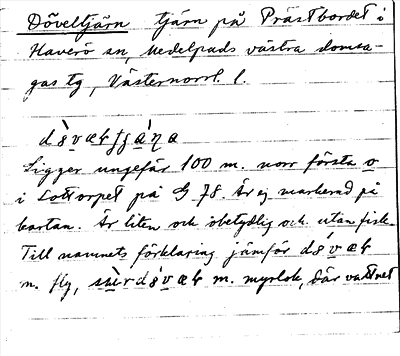 Döveltjärn tjärn på Prästbordet i
Haverö sn, Medelpads västra domsa-
gas tg, Västernorrl. l.
Ligger ungefär 100 m. norr första o
i Lottorpet på G 78 Är ej markerad på
kartan. Är liten och obetydlig och utan fisk.
Till namnets förklaring jämför
n. fly, m. myrlok, där vattnet